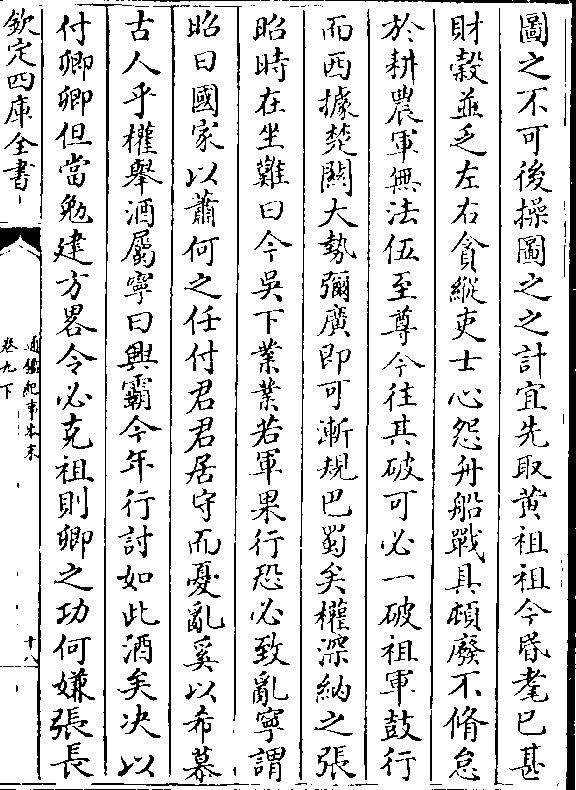 圖之不可後操圖之之計宜先取黄祖祖今昬耄已甚
財榖並乏左右貪縱吏士心怨舟船戰具頓廢不脩怠
於耕農軍無法伍至尊今往其破可必一破祖軍鼓行
而西據楚關大勢彌廣即可漸規巴蜀矣權深納之張
昭時在坐難曰今吳下業業若軍果行恐必致亂寧謂
昭曰國家以蕭何之任付君君居守而憂亂奚以希慕
古人乎權舉酒屬寧曰興霸今年行討如此酒矣决以
付卿卿但當勉建方畧令必克祖則卿之功何嫌張長
欽定四庫全書
通鑑紀事本末
卷九下
十八